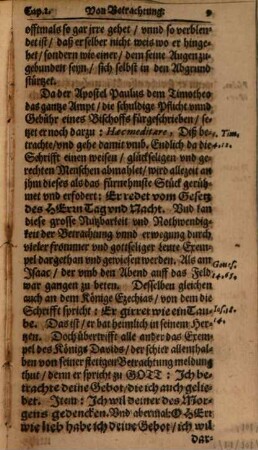 Cap. 1. Von Betrachtung. 9
offtmals so gar irre gehet / vnnd so verblen-
det ist / daß er selber nicht weis wo er hinge-
het / sondern wie einer / dem seine Augen zu-
gebunden seyn / sich selbst in den Abgrund
stürtzet.
Da der Apostel Paulus dem Timotheo
das gantze Ampt / die schuldige Pflicht vnnd
Gebühr eines Bischoffs fürgeschrieben /
setzet er noch darzu: Hæc meditare, Diß be- 1. Tim.
trachte / vnd gehe damit vmb. Endlich da die 4.
Schrifft einen weisen / glückseligen vnd ge-
rechten Menschen abmahlet / wird allezeit an
jhm dieses als das fürnehmste Stück gerüh-
met vnd erfodert: Er redet vom Gesetz
des HErrn Tag vnd Nacht. Vnd kan
diese grosse Nutzbarkeit vnd Nothwendig-
keit der Betrachtung vnnd erwegung durch
vieler frommer vnd gottseliger Leute Exem-
pel dargethan vnd gewiesen werden. Als am Genes.
Isaac / der vmb den Abend auff das Feld 24. 63.
war gangen zu beten. Desselben gleichen
auch an dem Könige Ezechias / von dem die
Schrifft spricht: Er girret wie ein Tau-
be. Das ist / er bat heimlich in seinem Her-
tzen. Doch übertrifft alle ander das Exem-
pel des Königs Davids / der schier allenthal-
ben von seiner stetigen Betrachtung meldung
thut / denn er spricht zu GOTT: Ich be-
trachte deine Gebot / die ich auch gelie-
bet. Item: Ich wil deiner des Mor-
gens gedencken. Vnd abermal: O HErr
wie lieb habe ich deine Gebot / ich wil
dar-